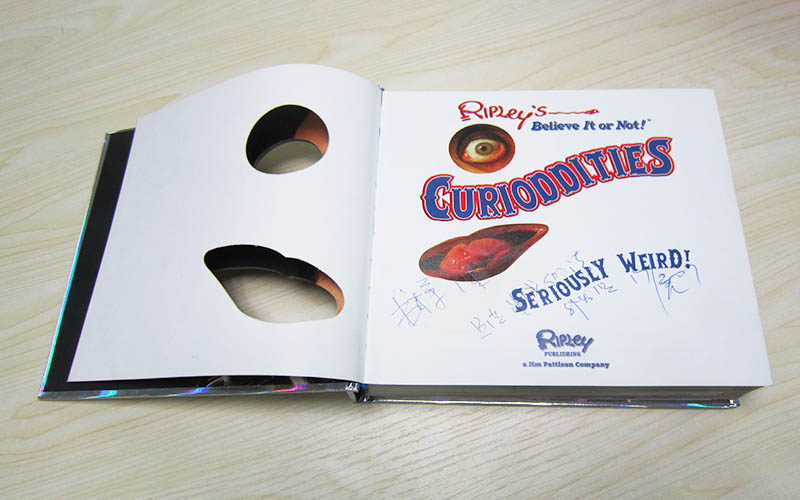 RIPLEY'S
Believe It or Not!
CURIODDITIES
SERIOUSLY WEIRD!
RIPLEY
PUBLISHING
a Jim Pattison Company